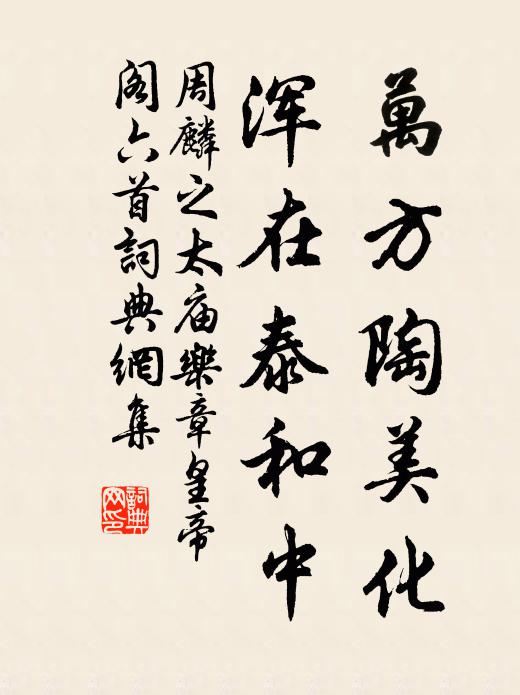 萬方陶美化
浑在泰和中
周麟之太庙樂章皇帝
阁六首詞典網集
詞典
网印